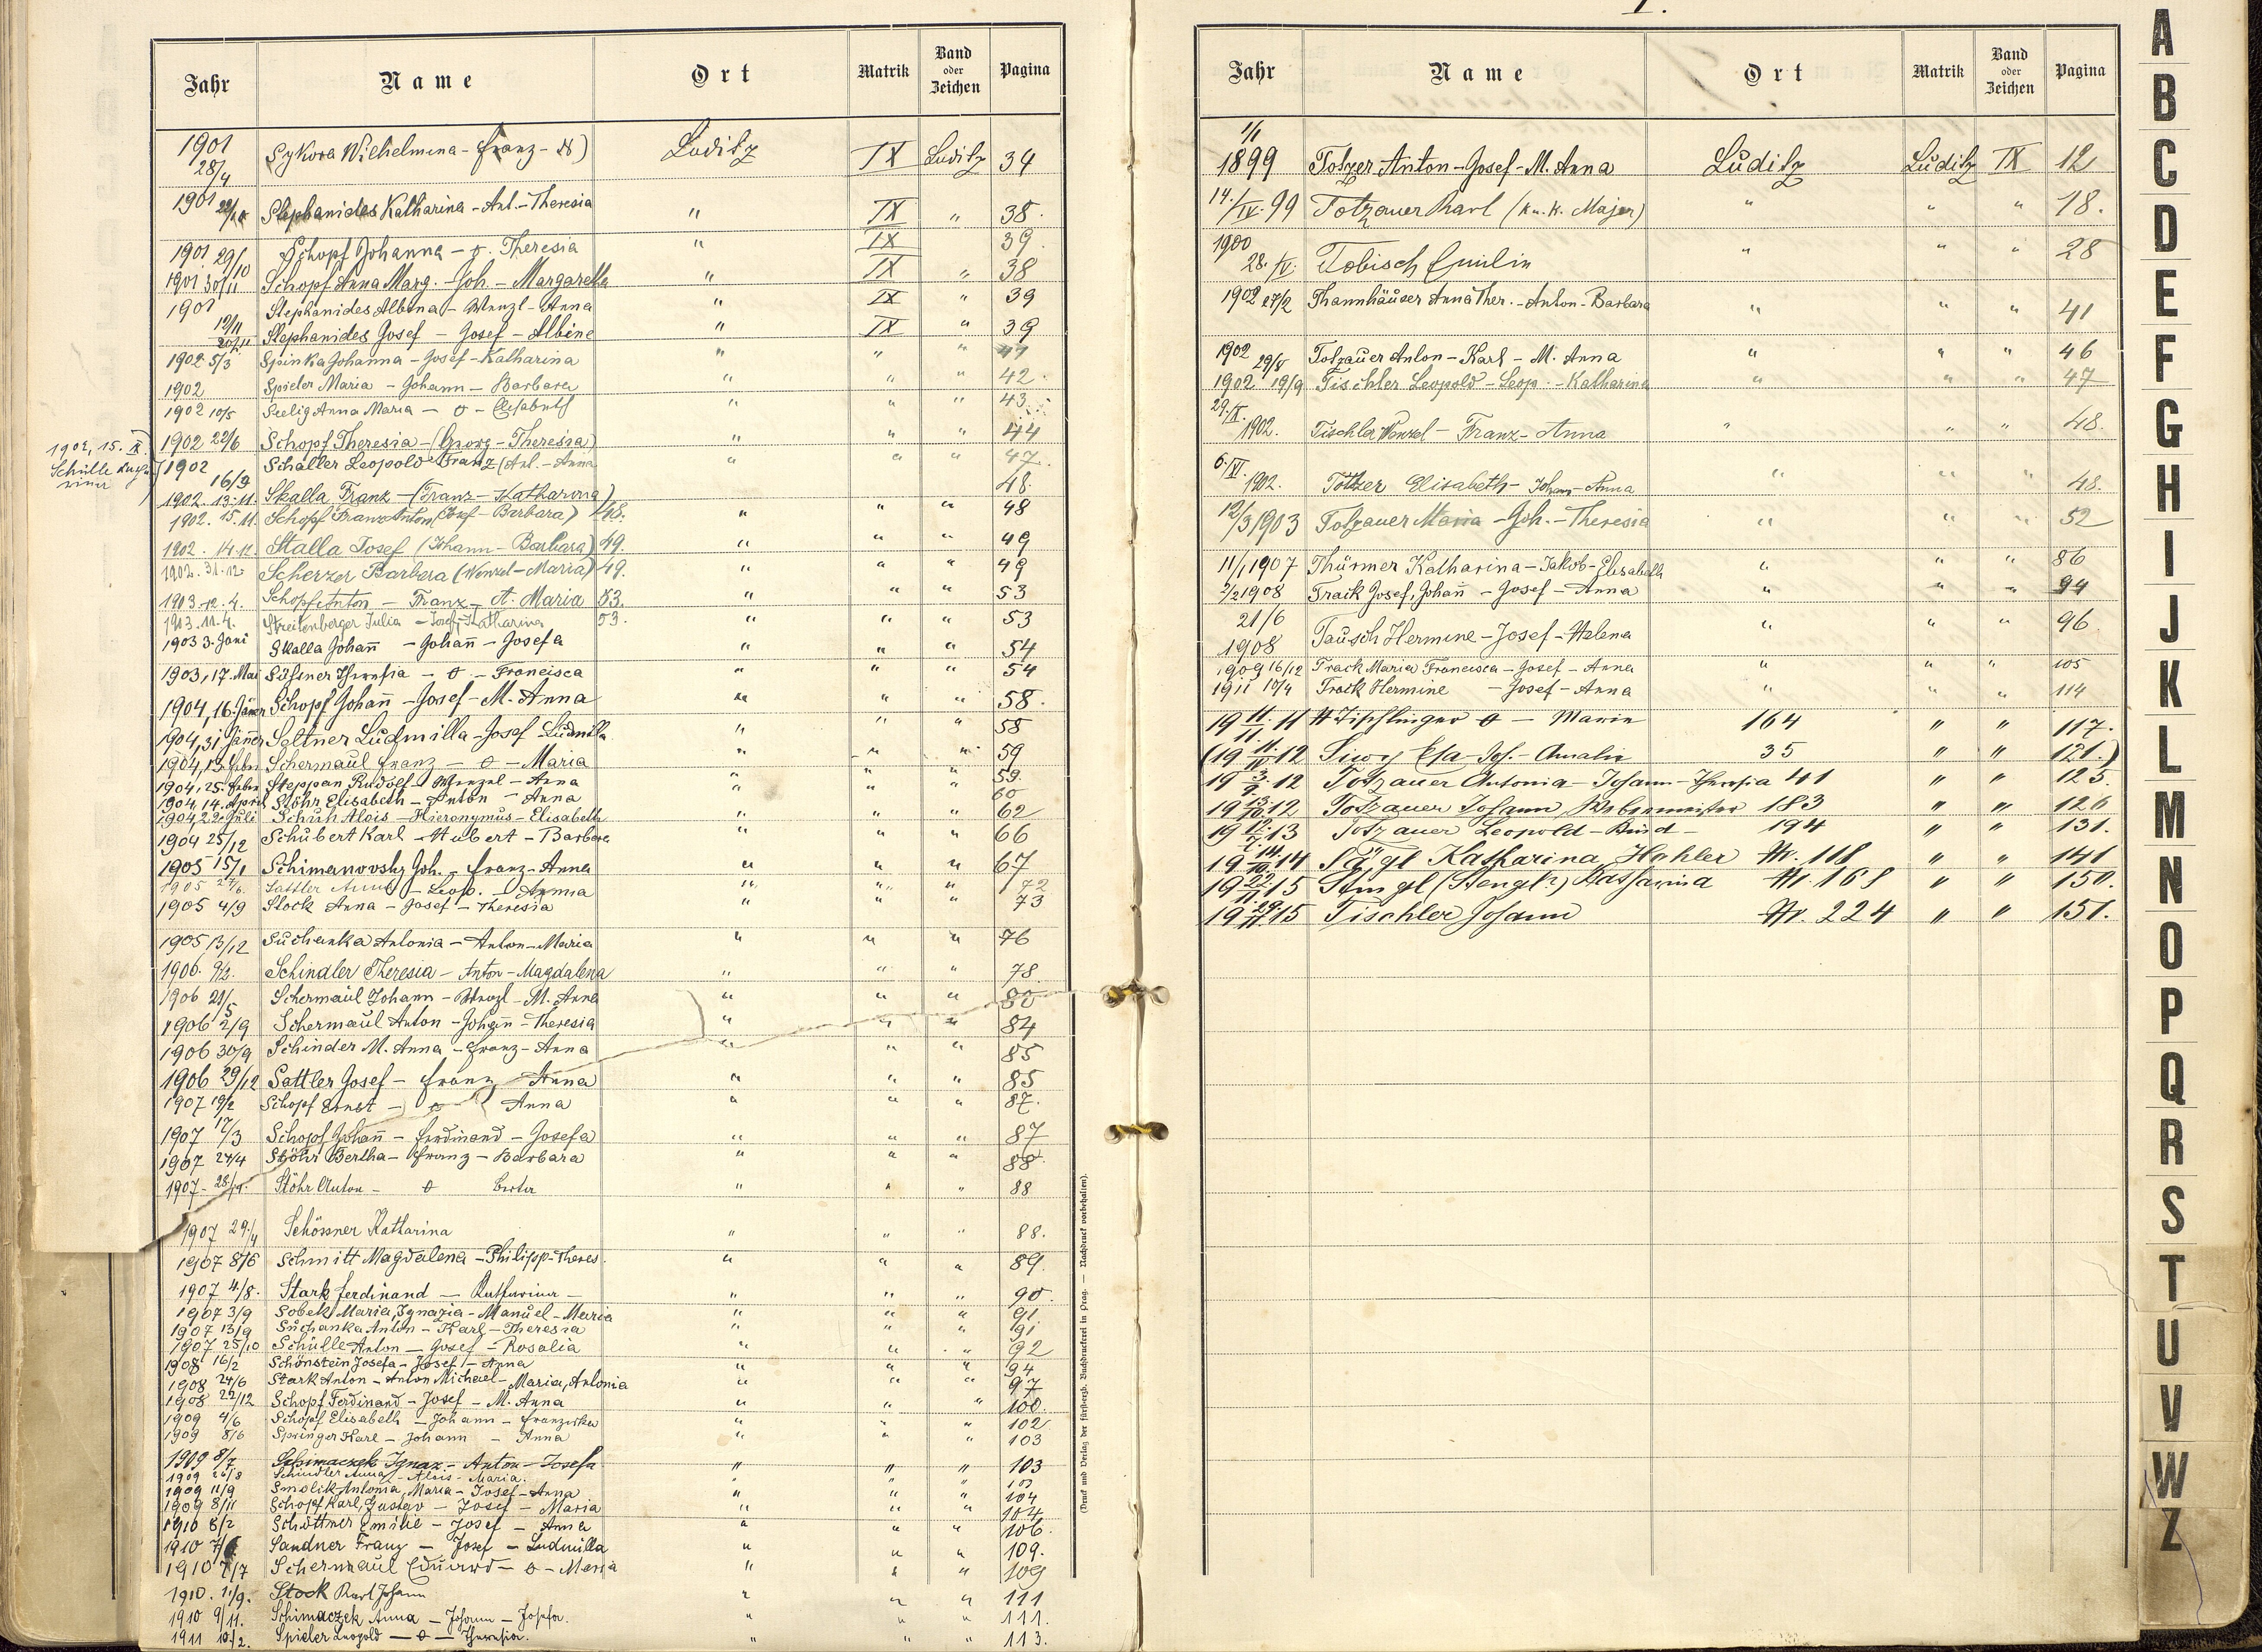 Jahr Name Ort Matrik Band oder Zeichen Pagina
1901 28/4 Sykora Wilhelmina - Franz - Luditz IX Luditz 34
1901 Stephanides Katharina - Ant. - Theresia " IX " 38.
1901 29/10 Schopf Johanna - o. Theresia " IX 39.
1901 30/11 Schopf Anna Marg. - Joh. - Margaretha " IX " 38
1901 19/11 Stephanides Albina - Wenzl - Anna " IX " 39
20/11 Stephanides Josef - Josef - Albine " IX " 39
1902 5/3 Spinka Johanna - Josef - Katharina " " " 41
1902 Spieler Maria - Johann - Barbara " " " 42.
1902 10/5 Seelig Anna Maria - o - Elisabeth " " " 43.
1902 22/6 Schopf Theresia - (Georg - Theresia) " " " 44
1902, 15. IX
Schülle
1902 16/9 Schaller Leopold Franz (Ant. - Anna " " " 47.
1902. 13.11. Skalla Franz - (Franz - Katharina) 48.
1902. 15.11. Schopf Franz Anton (Josef - Barbara) 48. " " " 48
1902. 14.12. Skalla Josef (Johann - Barbara) 49. " " " 49
1902. 31.12. Scherzer Barbara (Wenzel - Maria) 49. " " " 49
1903. 12. 4. Schopf Anton - Franz - A. Maria 53. " " " 53
1903. 11. 4. Streitenberger Julia - Josef - Katharina 53. " " " 53
1903 3. Juni Skalla Johan̄ - Johan̄ - Josefa " " " 54
1903, 17. Mai Theresia - o - Francisca " " " 54
1904, 16. Jäner Schopf Johan̄ - Josef - M. Anna " " " 58.
1904, 31 Jäner Seltner Ludmilla - Josef - Ludmilla " " " 58
1904, 13. Febr Schermaul Franz - o - Maria " " " 59
1904, 25. Febr Steppan Rudolf - Wenzel - Anna " " " 59.
1904, 14. April Stöhr Elisabeth - Anton - Anna " " " 60
1904, 22. Juli Schuh Alois - Hieronymus - Elisabeth " " " 62
1904 25/12 Schubert Karl - Hubert - Barbara " " " 66
1905 15/1 Schimanovsky Joh. - Franz - Anna " " " 67
1905 Sattler Anna - Leop. - Anna " " " 72
1905 4/9 Stock Anna - Josef - Theresia " " " 73
1905 13/12 Suchanka Antonia - Anton - Maria " " " 76
1906. 9/2. Schindler Theresia - Anton - Magdalena " " " 78
1906 21/5 Schermaul Johann - Wenzl - M. Anna " " " 80
1906 2/9 Schermaul Anton - Johan̄ - Theresia " " " 84
1906 30/9 Schinder M. Anna - Franz - Anna " " " 85
1906 29/12 Sattler Josef - Franz - Anna " " " 85
1907 19/2 Schopf Ernst - o - Anna " " " 87.
1907 17/3 Schopf Johan̄ - Ferdinand - Josefa " " " 87
1907 24/4 Stöhr Bertha - Franz - Barbara " " " 88
1907 - 28/4. Stöhr Anton - o Berta " " " 88
1907 29./4 Schössner Katharina " " " 88.
1907 8/6 Schmitt Magdalena - Philipp - Theres. " " " 89.
1907 4/8. Stark Ferdinand - Katharina - " " " 90.
1907 3/9 Sobek Maria, Ignazia - Manuel - Maria " " " 91
1907 13/9 Suchanka Anton - Karl - Theresia " " " 91
1907 25/10 Schülle Anton - Josef - Rosalia " " " 92
1908 16/2 Schönstein Josefa - Josef - Anna " " " 94
1908 24/6 Stark Anton - Anton Michael - Maria, Antonia " " " 97
1908 22/12 Schopf Ferdinand - Josef - M. Anna " " " 100.
1909 4/6 Schopf Elisabeth - Johann - Franziska " " " 102
1909 8/6 Springer Karl - Johann - Anna " " " 103
1909 8/7 Schimaczek Ignaz - Anton - Josefa " " " 103
1909 26/8 Schindler Anna - Alois - Maria. " " 103
1909 11/9 Smolik Antonia, Maria - Josef - Anna " " " 104
1909 8/11 Schopf Karl, Gustav - Josef - Maria " " " 104
1910 8/2 Schöttner Emilie - Josef - Anna " " " 106.
1910 Sandner Franz - Josef - Ludmilla " " " 109.
1910 7/7 Schermaul Eduard - o - Maria " " " 109
1910. 11/9. Stock Karl Johann " " " 111
1910 9/11. Schimaczek Anna - Johann - Josefa. " " " 111.
1911 10./2. Spieler Leopold - o - Theresia. " " " 113.
(Druck und Verlag der fürsterzb. Buchdruckerei in Prag. — Nachdruck vorbehalten).
T.
Jahr Name Ort Matrik Band oder Zeichen Pagina
1/1 1899 Totzer Anton - Josef - M. Anna Luditz Luditz IX 12
14./IV. 99 Totzauer Karl (k. u. k. Major) " " " 18.
1900 28./IV. Tobisch Emilie " " " 28
1902 27/2 Thannhäuser Anna Ther. - Anton - Barbara " " " 41
1902 29/8 Totzauer Anton - Karl - M. Anna " " " 46
1902 19/9 Tischler Leopold - Leop. - Katharina " " " 47
29./X. 1902. Tischler Wenzel - Franz - Anna " " " 48.
6./XI. 1902. Totzer Elisabeth - Johann - Anna " " " 48.
12/3 1903 Totzauer Maria - Joh. - Theresia " " " 52
11/1 1907 Thürmer Katharina - Jakob - Elisabeth " " " 86
2/2 1908 Track Josef, Johan̄ - Josef - Anna " " " 94
21/6 1908 Tausch Hermine - Josef - Helena " " " 96.
1909 16/12 Track Maria Francisca - Josef - Anna " " " 105
1911 17/4 Track Hermine - Josef - Anna " " " 114
19 11/11. 11 Tischlinger o - Marie 164 " " 117.
(19 11/IV. 12 - Jos. - Amalie 35 " " 121.)
19 3/9. 12 Totzauer Antonia - Johann - Theresia 41 " " 125.
19 13/10. 12 Totzauer Johann Webermeister 183 " " 126
19 12/7. 13 Totzauer Leopold - Kind - 194 " " 131.
19 14/10. 14 Tägl Katharina, Hahler Nr. 118 " " 141
19 22/11. 15 (Stengl) Katharina Nr. 168 " " 150.
19 29./11. 15 Tischler Johann Nr. 224 " " 151.
A
B
C
D
E
F
G
H
I
J
K
L
M
N
O
P
Q
R
S
T
U
V
W
Z